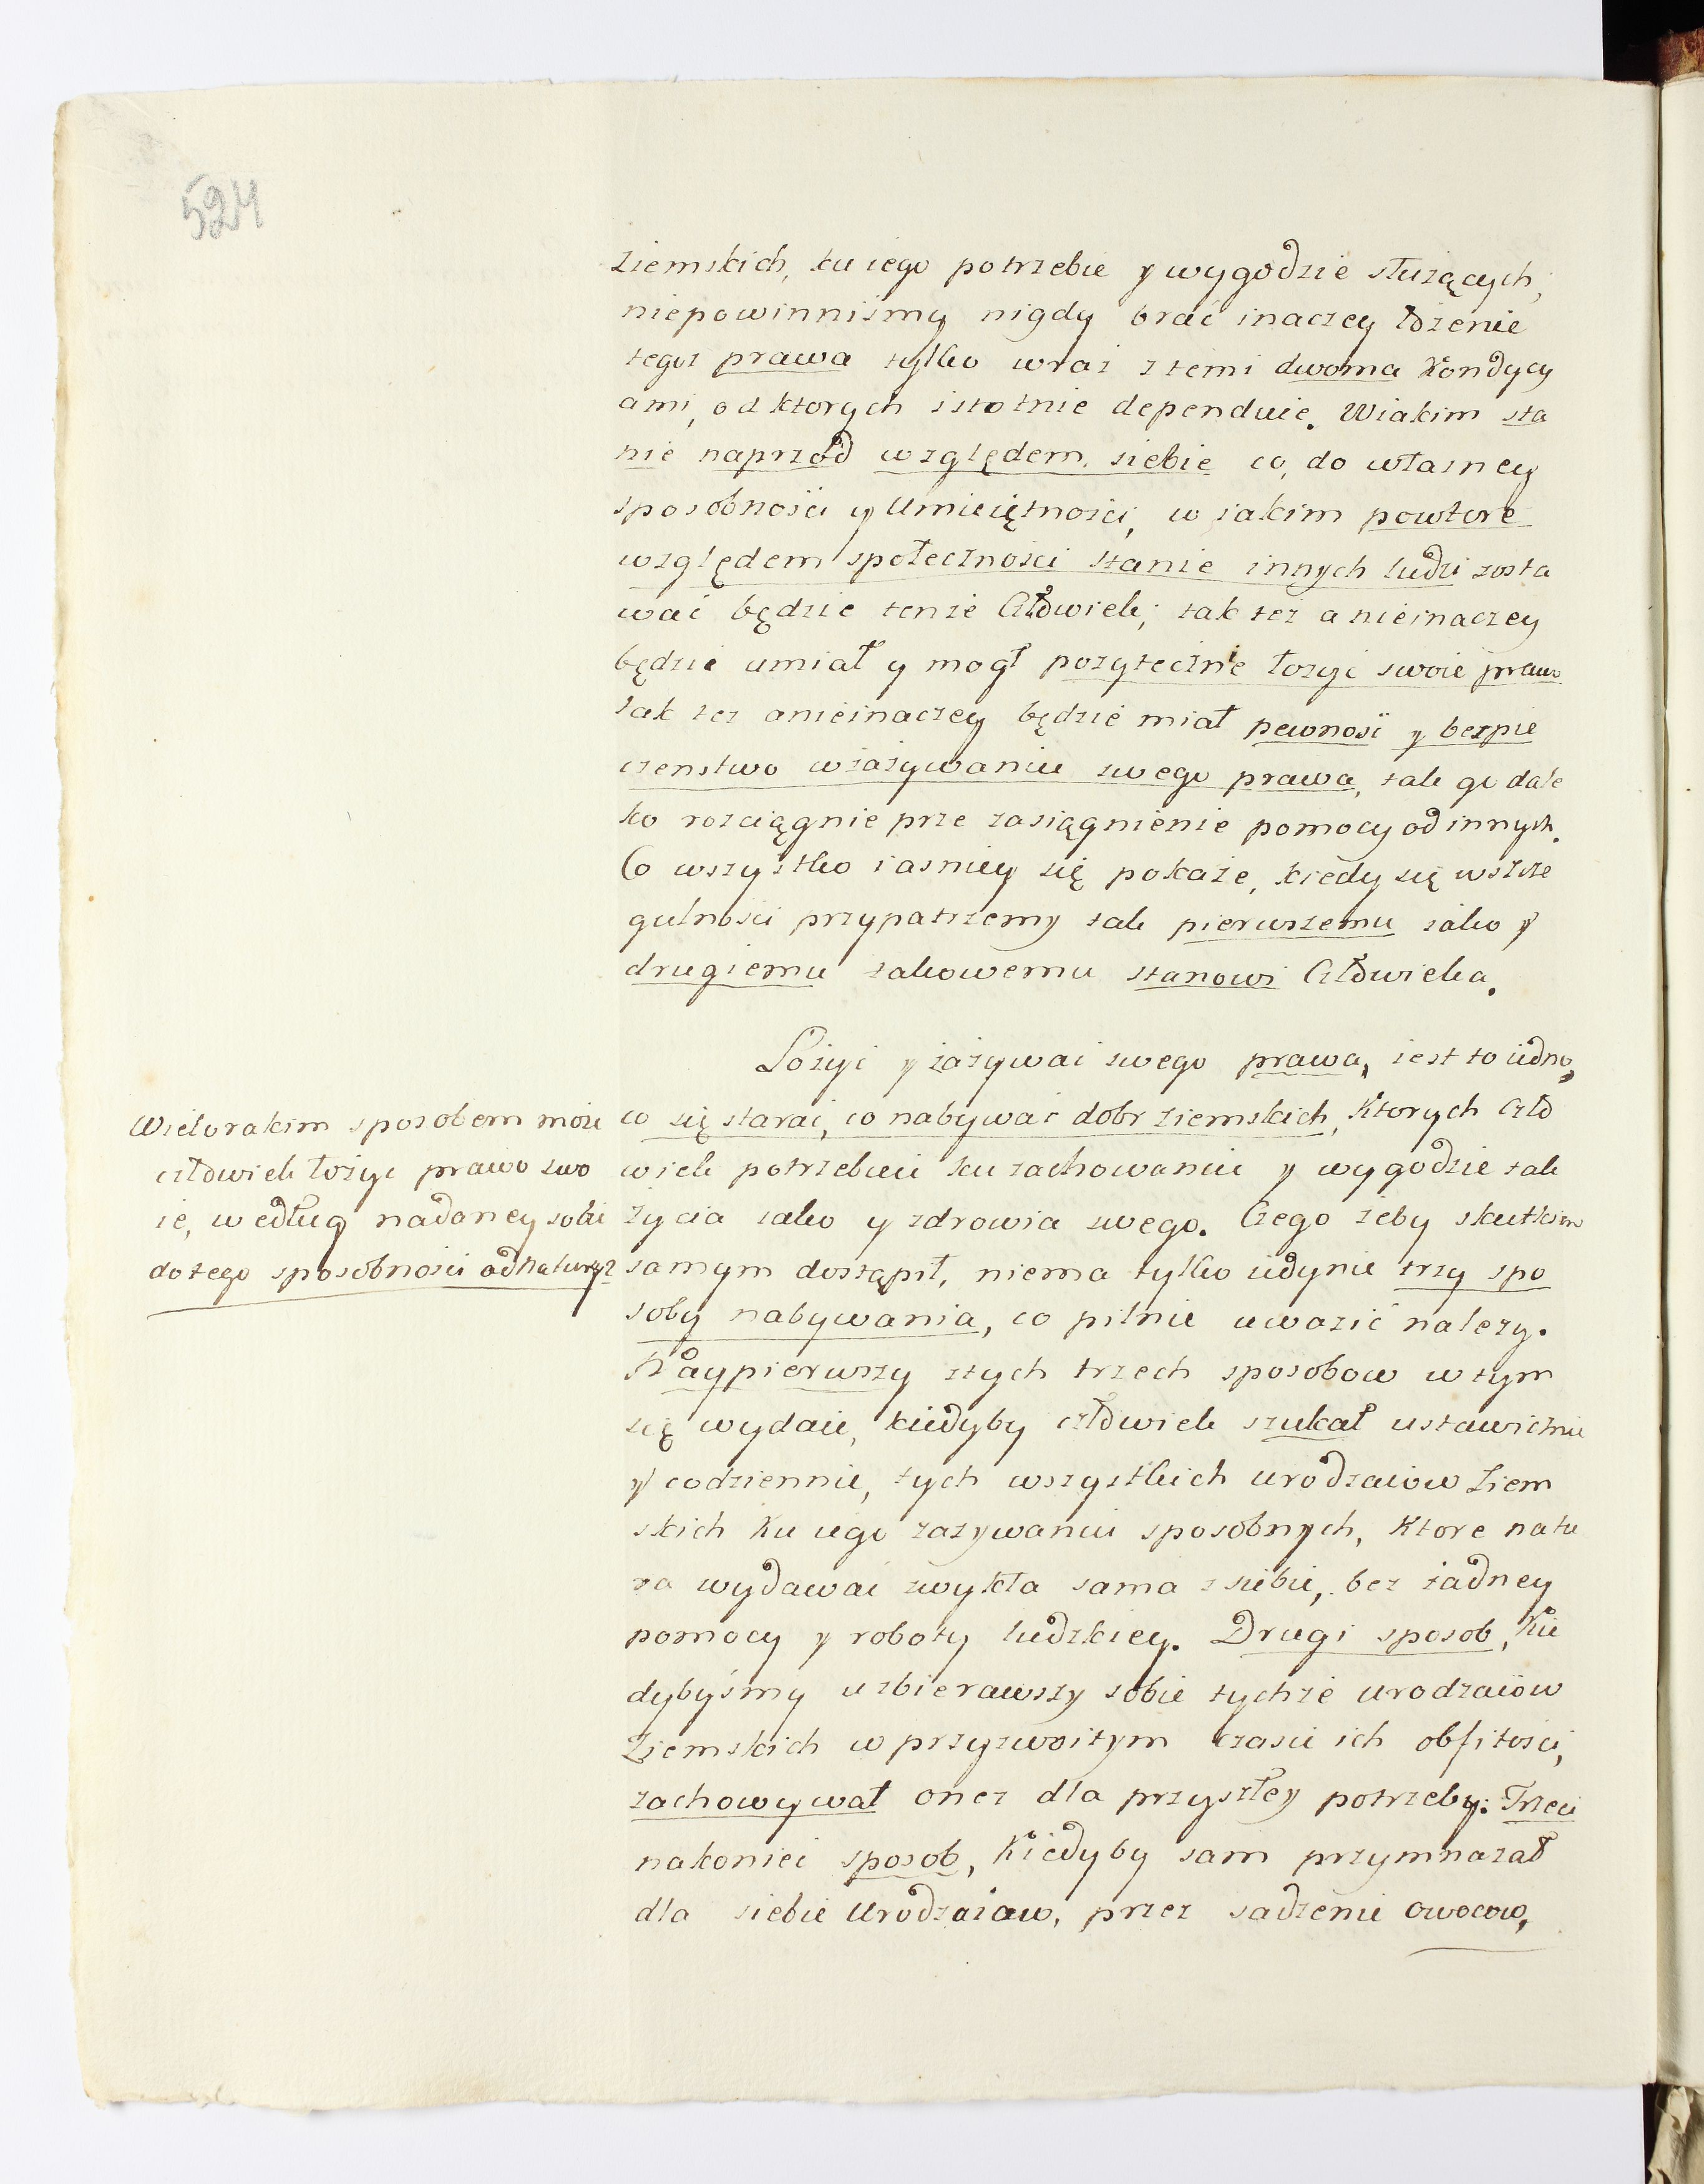 524
ziemskich, ku iego potrzebie y wygodzie służących,
niepowinniśmy nigdy brać inaczey łożenie
tegoż prawa tylko wraz z temi dwoma Kondycy
ami, od ktorych istotnie dependuie. W iakim sta
nie naprzód względem siebie co, do własney
sposobności y Umieiętności, w iakim powtore
względem społeczności stanie innych ludzi zosta
wać będzie tenże Człowiek; tak też a nieinaczey
będzie umiał y mogł pozytecznie łożyć swoie prawo
tak też anieinaczey będzie miał pewność y bezpie
czenstwo wzażywaniu swego prawa, tak go dale
ko rozciągnie prze zasiągnienie pomocy od innych.
Co wszystko iasniey się pokaże, kiedy się wszcze
gulności przypatrzemy tak pierwszemu iako y
drugiemu takowemu stanowi Człowieka.
Łożyć y zażywać swego prawa, iest to iedno,
co się starać, co nabywać dobr ziemskich, Ktorych czło
wiek potrzebuie ku zachowaniu y wygodzie tak
życia iako y zdrowia swego. Czego żeby skutkiem
samym dostąpił, niema tylko iedynie trzy spo
soby nabywania, co pilnie uwazić nalezy.
Naypierwszy ztych trzech sposobow wtym
się wydaie, kiedyby człowiek szukał ustawicznie
y codziennie, tych wszystkich urodzaiow Ziem
skich Ku iego zazywaniu sposobnych, Ktore natu
ra wydawać zwykła sama z siebie, bez żadney
pomocy y roboty ludzkiey. Drugi sposob, Kie
dybyśmy uzbierawszy sobie tychże urodzaiów
Ziemskich w przyzwoitym czasie ich obfitości,
zachowywał onez dla przyszłey potrzeby: Trzeci
nakoniec sposob, Kiedyby sam przymnażał
dla siebie Urodzaiow, przez sadzenie owocow,
Wielorakim sposobem może
człowiek łożyć prawo swo
ie, według nadaney sobie
do tego sposobności od Natury?